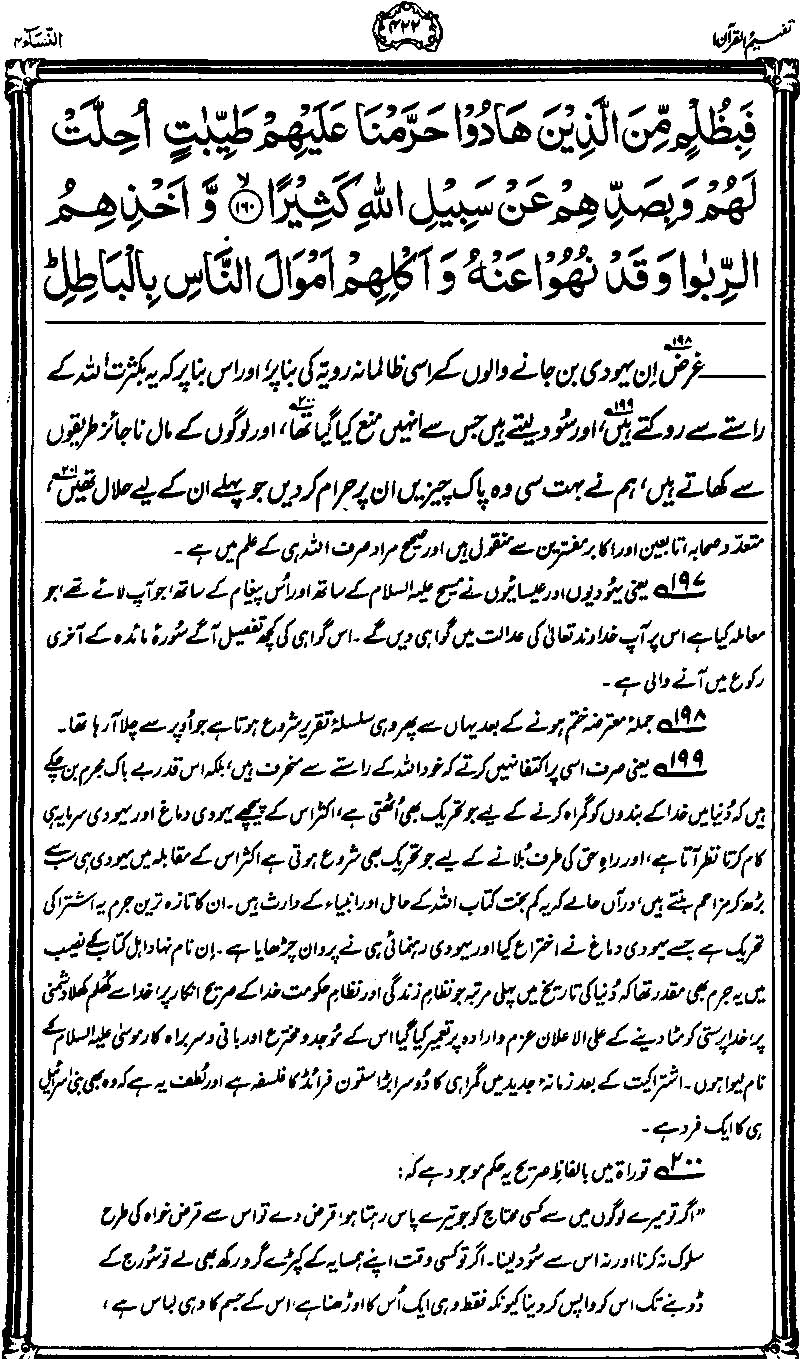 تفہیم القرآن ۱
۴۲۲
النسآء ۴
فَبِظُلْمٍ مِّنَ الَّذِيْنَ هَادُوْا حَرَّمْنَا عَلَيْهِمْ طَيِّبٰتٍ اُحِلَّتْ
لَهُمْ وَبِصَدِّهِمْ عَنْ سَبِيْلِ اللّٰهِ كَثِيْرًا ﴿۱۶۰﴾ۙ وَّ اَخْذِهِمُ
الرِّبٰوا وَقَدْ نُهُوْا عَنْهُ وَاَكْلِهِمْ اَمْوَالَ النَّاسِ بِالْبَاطِلِؕ
غرض۱۹۸ اِن یہودی بن جانے والوں کے اسی ظالمانہ رویہ کی بنا پر، اور اس بنا پر کہ یہ بکثرت اللہ کے
راستے سے روکتے ہیں۱۹۹، اور سُود لیتے ہیں جس سے انہیں منع کیا گیا تھا۲۰۰، اور لوگوں کے مال ناجائز طریقوں
سے کھاتے ہیں، ہم نے بہت سی وہ پاک چیزیں ان پر حرام کر دیں جو پہلے ان کے لیے حلال تھیں۲۰۱،
متعدّد صحابہ، تابعین اور اکابر مفسّرین سے منقول ہیں اور صحیح مراد صرف اللہ ہی کے علم میں ہے۔
۱۹۷ یعنی یہودیوں اور عیسائیوں نے مسیح علیہ السلام کے ساتھ اور اُس پیغام کے ساتھ، جو آپ لائے تھے، جو
معاملہ کیا ہے اس پر آپ خداوند تعالیٰ کی عدالت میں گواہی دیں گے۔ اس گواہی کی کچھ تفصیل آگے سُورۂ مائدہ کے آخری
رکوع میں آنے والی ہے۔
۱۹۸ جملۂ معترضہ ختم ہونے کے بعد یہاں سے پھر وہی سلسلۂ تقریر شروع ہوتا ہے جو اُوپر سے چلا آ رہا تھا۔
۱۹۹ یعنی صرف اسی پر اکتفا نہیں کرتے کہ خود اللہ کے راستے سے منحرف ہیں، بلکہ اس قدر بے باک مجرم بن چکے
ہیں کہ دُنیا میں خدا کے بندوں کو گمراہ کرنے کے لیے جو تحریک بھی اُٹھتی ہے، اکثر اس کے پیچھے یہودی دماغ اور یہودی سرمایہ ہی
کام کرتا نظر آتا ہے، اور راہِ حق کی طرف بُلانے کے لیے جو تحریک بھی شروع ہوتی ہے اکثر اس کے مقابلہ میں یہودی ہی سب سے
بڑھ کر مزاحم بنتے ہیں، درآں حالے کہ یہ کم بخت کتاب اللہ کے حامل اور انبیاء کے وارث ہیں۔ ان کا تازہ ترین جرم یہ اشتراکی
تحریک ہے جسے یہودی دماغ نے اختراع کیا اور یہودی رہنمائی ہی نے پروان چڑھایا ہے۔ اِن نام نہاد اہل کتاب کے نصیب
میں یہ جرم بھی مقدر تھا کہ دُنیا کی تاریخ میں پہلی مرتبہ جو نظامِ زندگی اور نظامِ حکومت خدا کے صریح انکار پر، خدا سے کُھلم کھلا دشمنی
پر، خدا پرستی کو مٹا دینے کے علی الاعلان عزم و ارادہ پر تعمیر کیا گیا اس کے مُوجد و مخترع اور بانی و سربراہ کار موسیٰ علیہ السلام کے
نام لیوا ہوں۔ اشتراکیت کے بعد زمانۂ جدید میں گمراہی کا دُوسرا بڑا ستون فرائڈ کا فلسفہ ہے اور لُطف یہ ہے کہ وہ بھی بنی اسرائیل
ہی کا ایک فرد ہے۔
۲۰۰ توراۃ میں بالفاظِ صریح یہ حکم موجود ہے کہ:
”اگر تُو میرے لوگوں میں سے کسی محتاج کو جو تیرے پاس رہتا ہو، قرض دے تو اس سے قرض خواہ کی طرح
سلوک نہ کرنا اور نہ اس سے سُود لینا۔ اگر تُو کسی وقت اپنے ہمسایہ کے کپڑے گرو رکھ بھی لے تو سُورج کے
ڈوبنے تک اس کو واپس کر دینا کیونکہ فقط وہی ایک اُس کا اوڑھنا ہے، اس کے جسم کا وہی لباس ہے،